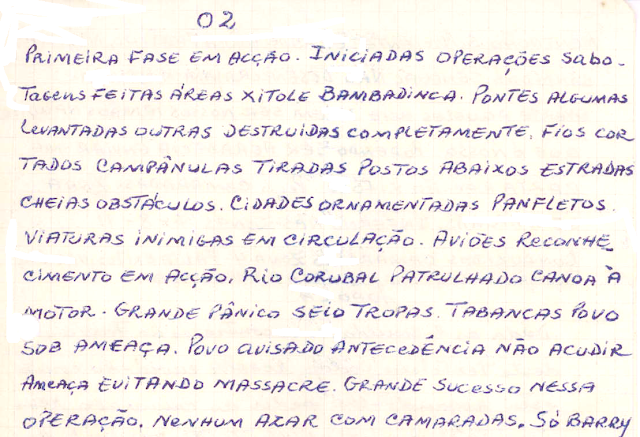 02
PRIMEIRA FASE EM ACÇÃO. INICIADAS OPERAÇÕES SABO-
TAGENS FEITAS ÁREAS XITOLE BAMBADINCA. PONTES ALGUMAS
LEVANTADAS OUTRAS DESTRUIDAS COMPLETAMENTE. FIOS COR
TADOS CAMPÂNULAS TIRADAS POSTOS ABAIXOS ESTRADAS
CHEIAS OBSTÁCULOS. CIDADES ORNAMENTADAS PANFLETOS.
VIATURAS INIMIGAS EM CIRCULAÇÃO. AVIÕES RECONHE
CIMENTO EM ACÇÃO. RIO CORUBAL PATRULHADO CANOA À
MOTOR. GRANDE PÂNICO SEIO TROPAS. TABANCAS POVO
SOB AMEAÇA. POVO AVISADO ANTECEDÊNCIA NÃO ACUDIR
AMEAÇA EVITANDO MASSACRE. GRANDE SUCESSO NESSA
OPERAÇÃO. NENHUM AZAR COM CAMARADAS. SÓ BARRY